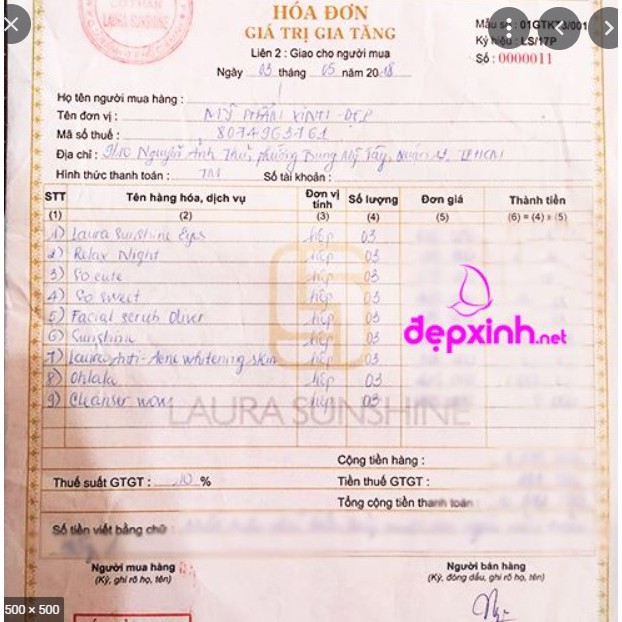 CỔ PHẦN
LAURA SUNSHINE
HÓA ĐƠN
GIÁ TRỊ GIA TĂNG
Liên 2 : Giao cho người mua
Ngày 03 tháng 05 năm 2018
Mẫu số : 01GTKT3/001
Ký hiệu : LS/17P
Số : 0000011
Họ tên người mua hàng :
Tên đơn vị : MỸ PHẨM XINH ĐẸP
Mã số thuế :
Địa chỉ : Nguyễn Ảnh Thủ, phường Trung Mỹ Tây, Quận 12, TPHCM
Hình thức thanh toán : TM Số tài khoản :
STT Tên hàng hóa, dịch vụ Đơn vị tính Số lượng Đơn giá Thành tiền
(1) (2) (3) (4) (5) (6) = (4) x (5)
1) Laura Sunshine Eyes hộp 03
2) Relax Night hộp 03
3) So cute hộp 03
4) So sweet hộp 03
5) Facial scrub Oliver hộp 03
6) Sunshine hộp 03
7) Laura Anti-Acne whitening skin hộp 03
8) Ohlala hộp 03
9) Cleanser wow hộp 03
đẹpxinh.net
LAURA SUNSHINE
Cộng tiền hàng :
Thuế suất GTGT : 10 % Tiền thuế GTGT :
Tổng cộng tiền thanh toán :
Số tiền viết bằng chữ :
Người mua hàng Người bán hàng
(Ký, ghi rõ họ, tên) (Ký, đóng dấu, ghi rõ họ, tên)
500 × 500